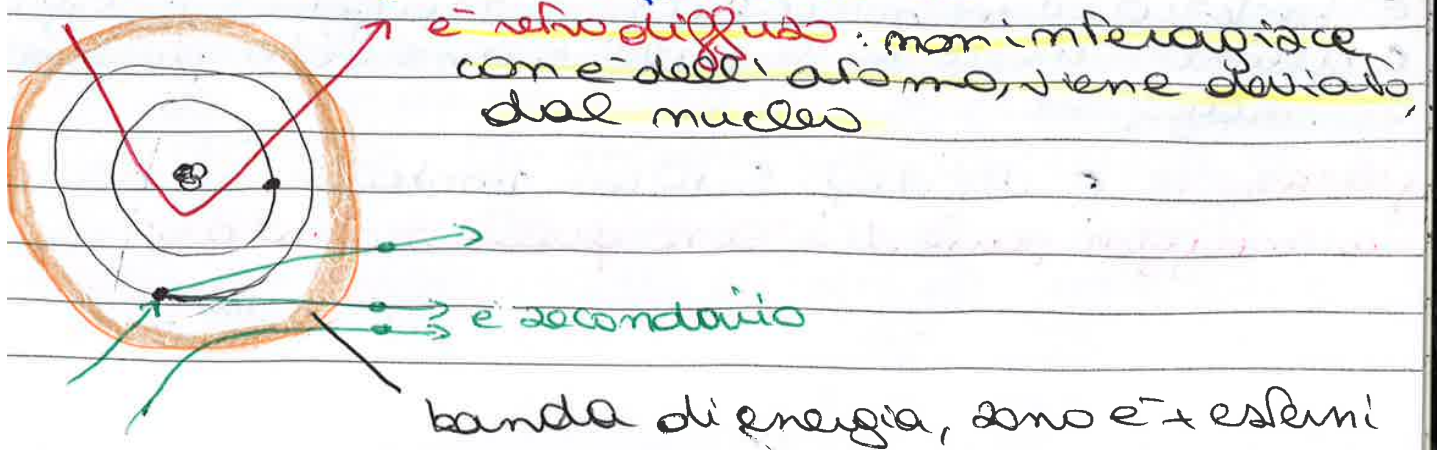 e⁻ retrodiffuso: non interagisce
con e⁻ dell' atomo, viene deviato
dal nucleo
e⁻ secondario
banda di energia, sono e⁻ + esterni